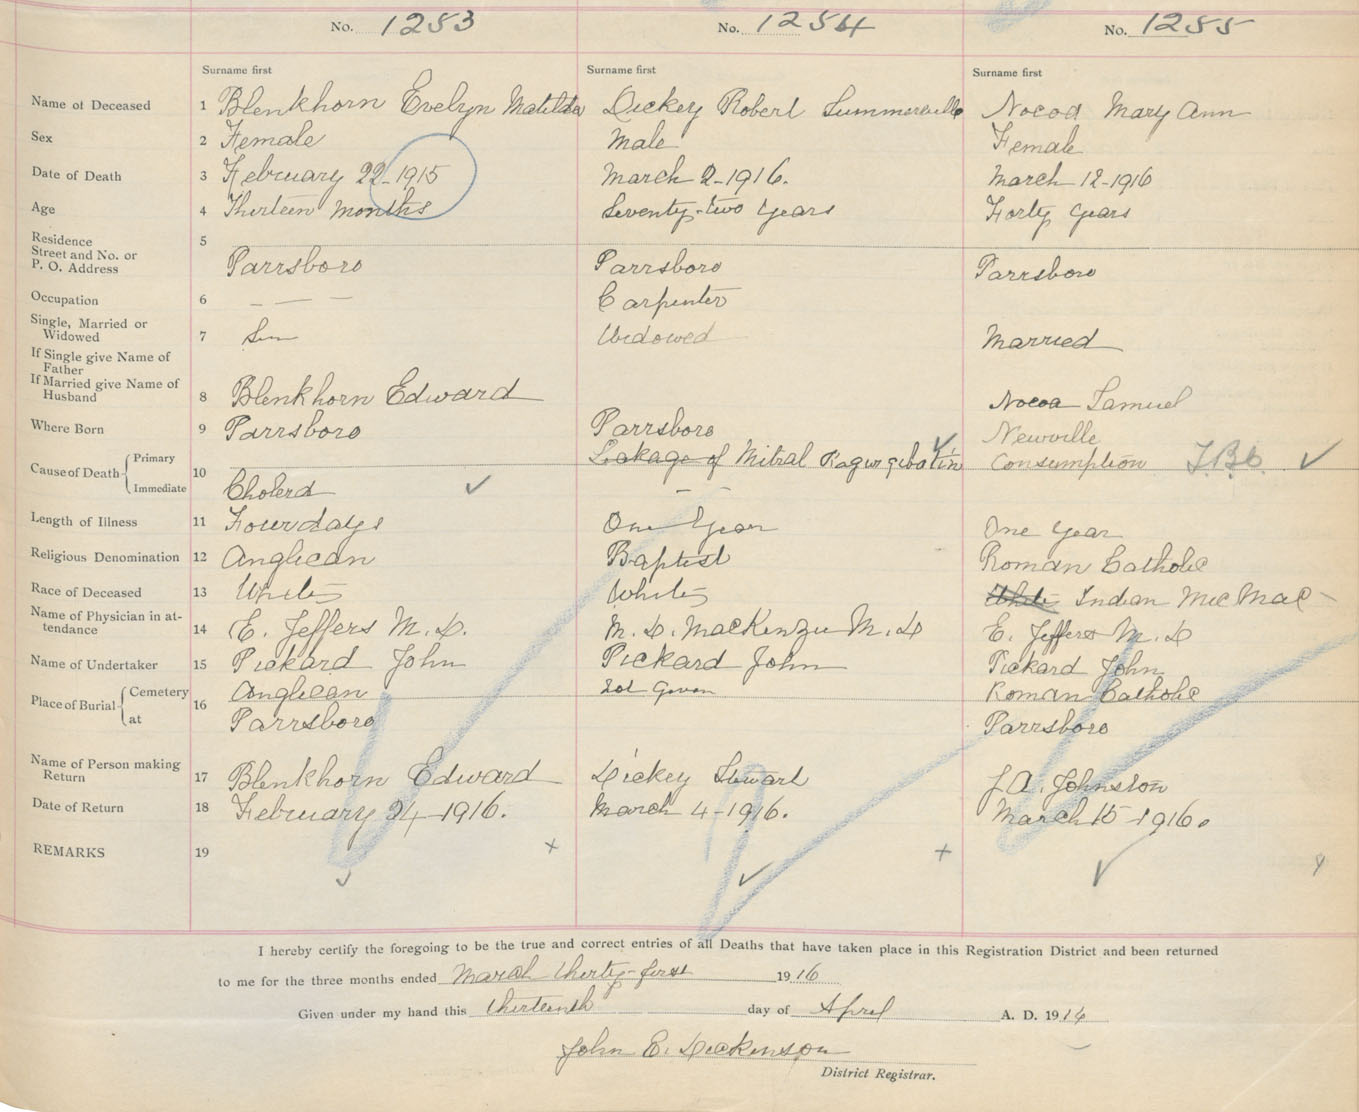 No. 1253 No. 1254 No. 1255
Surname first Surname first Surname first
Name of Deceased 1 Blenkhorn Evelyn Matilda Dickey Robert Summerville Nocoa Mary Ann
Sex 2 Female Male Female
Date of Death 3 February 22-1915 March 2-1916. March 12-1916
Age 4 Thirteen months Seventy-two years Forty years
Residence 5
Street and No. or
P. O. Address Parrsboro Parrsboro Parrsboro
Occupation 6 — — — Carpenter
Single, Married or
Widowed 7 Sin Widowed Married
If Single give Name of
Father
If Married give Name of
Husband 8 Blenkhorn Edward Nocoa Samuel
Where Born 9 Parrsboro Parrsboro Newville
Cause of Death Primary 10 Leakage of Mitral Ragurgibation Consumption T.B.
Immediate Cholera — —
Length of Illness 11 Four days One Year One Year
Religious Denomination 12 Anglican Baptist Roman Catholic
Race of Deceased 13 White White White Indian Mic Mac
Name of Physician in at-
tendance 14 E. Jeffers M.D. M. D. MacKenzie M.D E. Jeffers M.D
Name of Undertaker 15 Pickard John Pickard John Pickard John
Place of Burial Cemetery 16 Anglican Not Given Roman Catholic
at Parrsboro Parrsboro
Name of Person making
Return 17 Blenkhorn Edward Dickey Stewart J.A. Johnston
Date of Return 18 February 24-1916. March 4-1916. March 15-1916.
REMARKS 19
I hereby certify the foregoing to be the true and correct entries of all Deaths that have taken place in this Registration District and been returned
to me for the three months ended March thirty-first 1916
Given under my hand this thirteenth day of April A. D. 1916
John E. Dickenson
District Registrar.